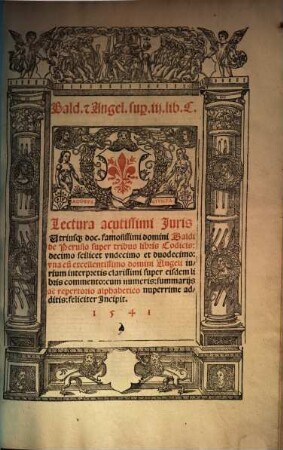 Bald. ⁊ Angel. sup. iii. lib. C.
Lectura acutissimi Juris
Utriusq; doc. famosissimi domini Baldi
de Perusio super tribus libris Codicis:
decimo scilicet undecimo et duodecimo:
una cū excellentissimo domini Angeli iu-
rium interpretis clarissimi super eisdem li
bris commento: cum numeris: summarijs
ac repertorio alphabetico nuperrime ad
ditis: feliciter Incipit.
1541